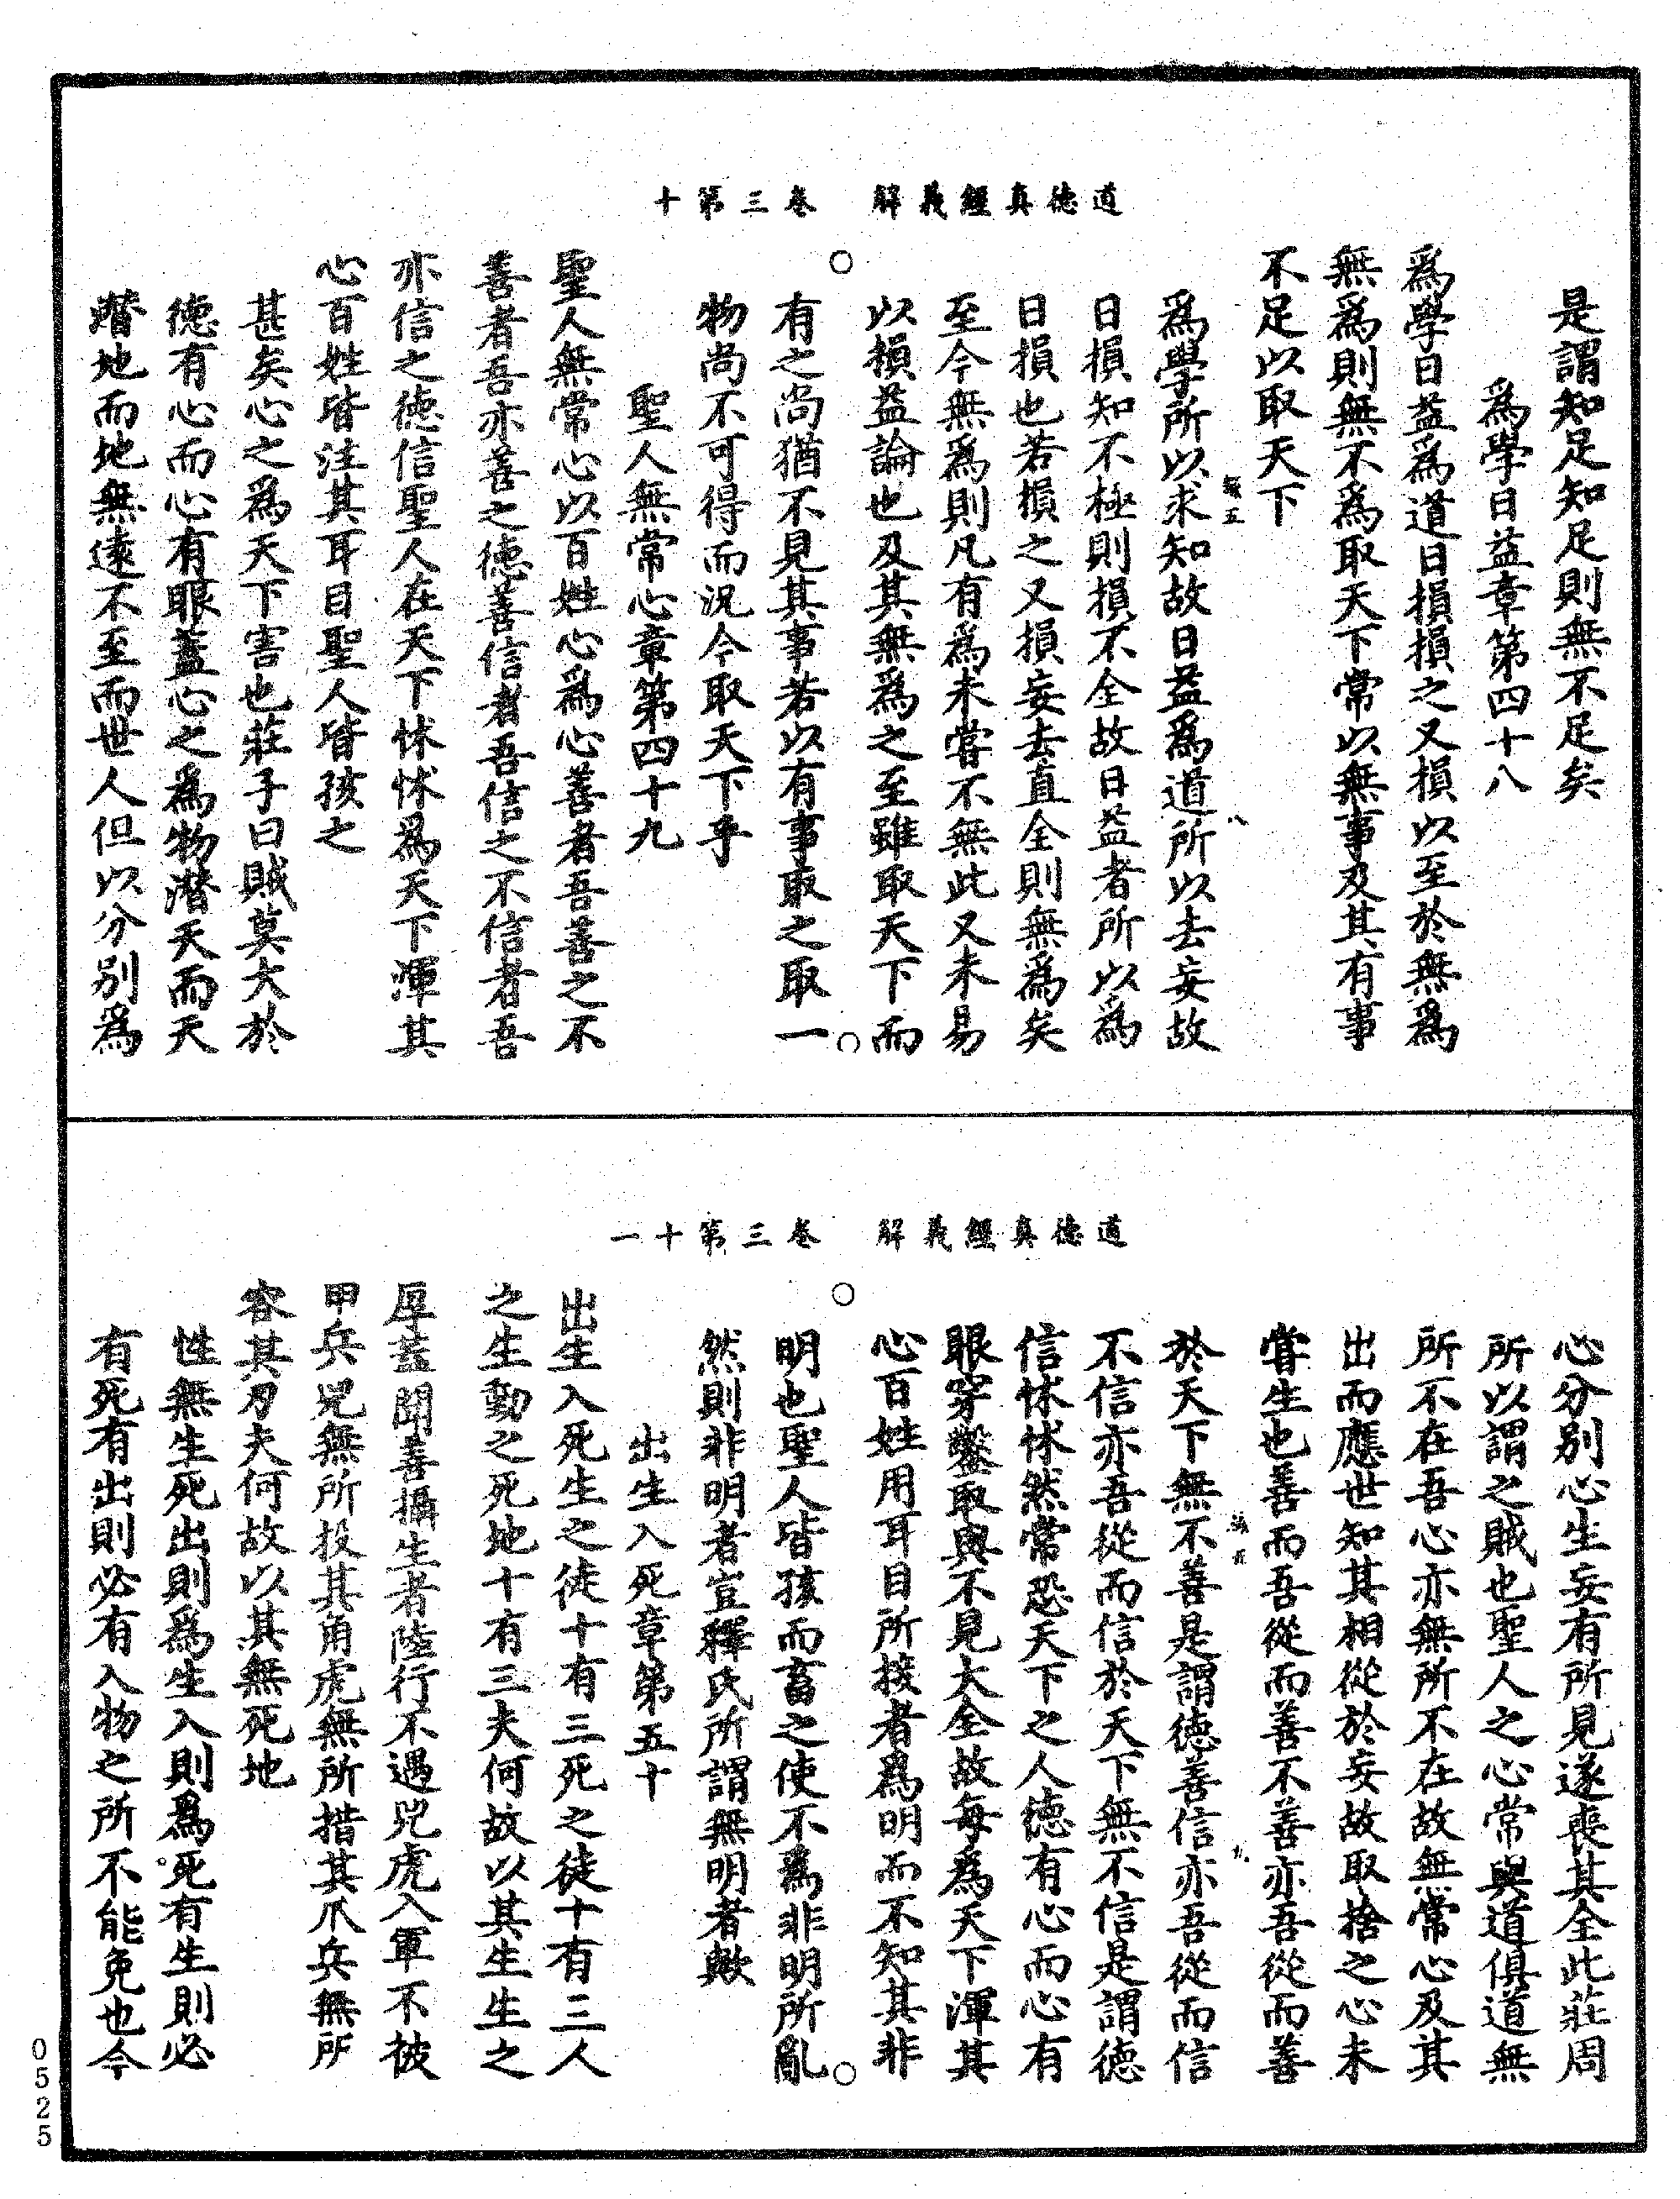 道德真經義解　卷三第十
是謂知足知足則無不足矣
爲學日益章第四十八
爲學日益爲道日損損之又損以至於無爲
無爲則無不爲取天下常以無事及其有事
不足以取天下
爲學所以求知故日益爲道所以去妄故
日損知不極則損不全故日益者所以爲
日損也若損之又損妄去直全則無爲矣
至今無爲則凡有爲未嘗不無此又未易
以損益論也及其無爲之至雖取天下而
有之尚猶不見其事若以有事取之取一
物尚不可得而況今取天下乎
聖人無常心章第四十九
聖人無常心以百姓心爲心善者吾善之不
善者吾亦善之德善信者吾信之不信者吾
亦信之德信聖人在天下怵怵爲天下渾其
心百姓皆注其耳目聖人皆孩之
甚矣心之爲天下害也莊子曰賊莫大於
德有心而心有眼蓋心之爲物潛天而天
潛地而地無遠不至而世人但以分別爲
道德真經義解　卷三第十一
心分別心生妄有所見遂喪其全此莊周
所以謂之賊也聖人之心常與道俱道無
所不在吾心亦無所不在故無常心及其
出而應世知其相從於妄故取捨之心未
嘗生也善而吾從而善不善亦吾從而善
於天下無不善是謂德善信亦吾從而信
不信亦吾從而信於天下無不信是謂德
信怵怵然常恐天下之人德有心而心有
眼穿鑿取與不見大全故每爲天下渾其
心百姓用耳目所接者爲明而不知其非
明也聖人皆孩而畜之使不爲非明所亂
然則非明者豈釋氏所謂無明者歟
出生入死章第五十
出生入死生之徒十有三死之徒十有三人
之生動之死地十有三夫何故以其生生之
厚蓋聞善攝生者陸行不遇兕虎入軍不被
甲兵兕無所投其角虎無所措其爪兵無所
容其刃夫何故以其無死地
性無生死出則爲生入則爲死有生則必
有死有出則必有入物之所不能免也今
0525